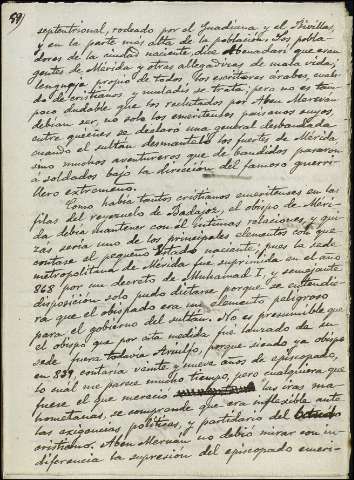 58)
septentrional, rodeado por el Guadiana y el Rivillas,
y en la parte más alta de la poblacion. Los pobla-
dores de la ciudad naciente, dice Abenadari que eran
gentes de Mérida y otros allegadizos de mala vida,
lenguaje propio de todos los escritores árabes cuan-
do de cristianos y muladís se trata; pero no es tam-
poco dudable que los reclutados por Aben Meruán
debian ser, no solo los emeritenses paisanos suyos,
entre quienes se declaró una general desbandada,
cuando el sultán desmanteló los fuertes de Mérida
sino muchos aventureros que de bandidos pasaron
á soldados bajo la direccion del famoso guerri-
llero extremeño.
Como habia tantos cristianos emeritenses en las
filas del reyezuelo de Badajoz, el obispo de Méri-
da debia mantener con él íntimas relaciones, y qui-
zás seria uno de los principales elementos con que
contase el pequeño Estado naciente; pues la sede
metropolitana de Mérida fue suprimida en el año
868 por un decreto de Muhamad I, y semejante
disposicion solo pudo dictarse porque se entendie-
ra que el obispado era un elemento peligroso
para el gobierno del sultán. No es presumible que
el obispo que por esta medida fué lanzado de su
sede fuera todavia Ariulfo, porque siendo ya obispo
en 839 contaria veinte y nueve años de episcopado,
lo cual me parece mucho tiempo, pero cualquiera que
fuese el que mereció las iras ma-
hometanas, se comprende que era inflexible ante
las exigencias políticas, y partidario del
cristiano. Aben Meruán no debió mirar con in-
diferencia la supresion del episcopado emeri-